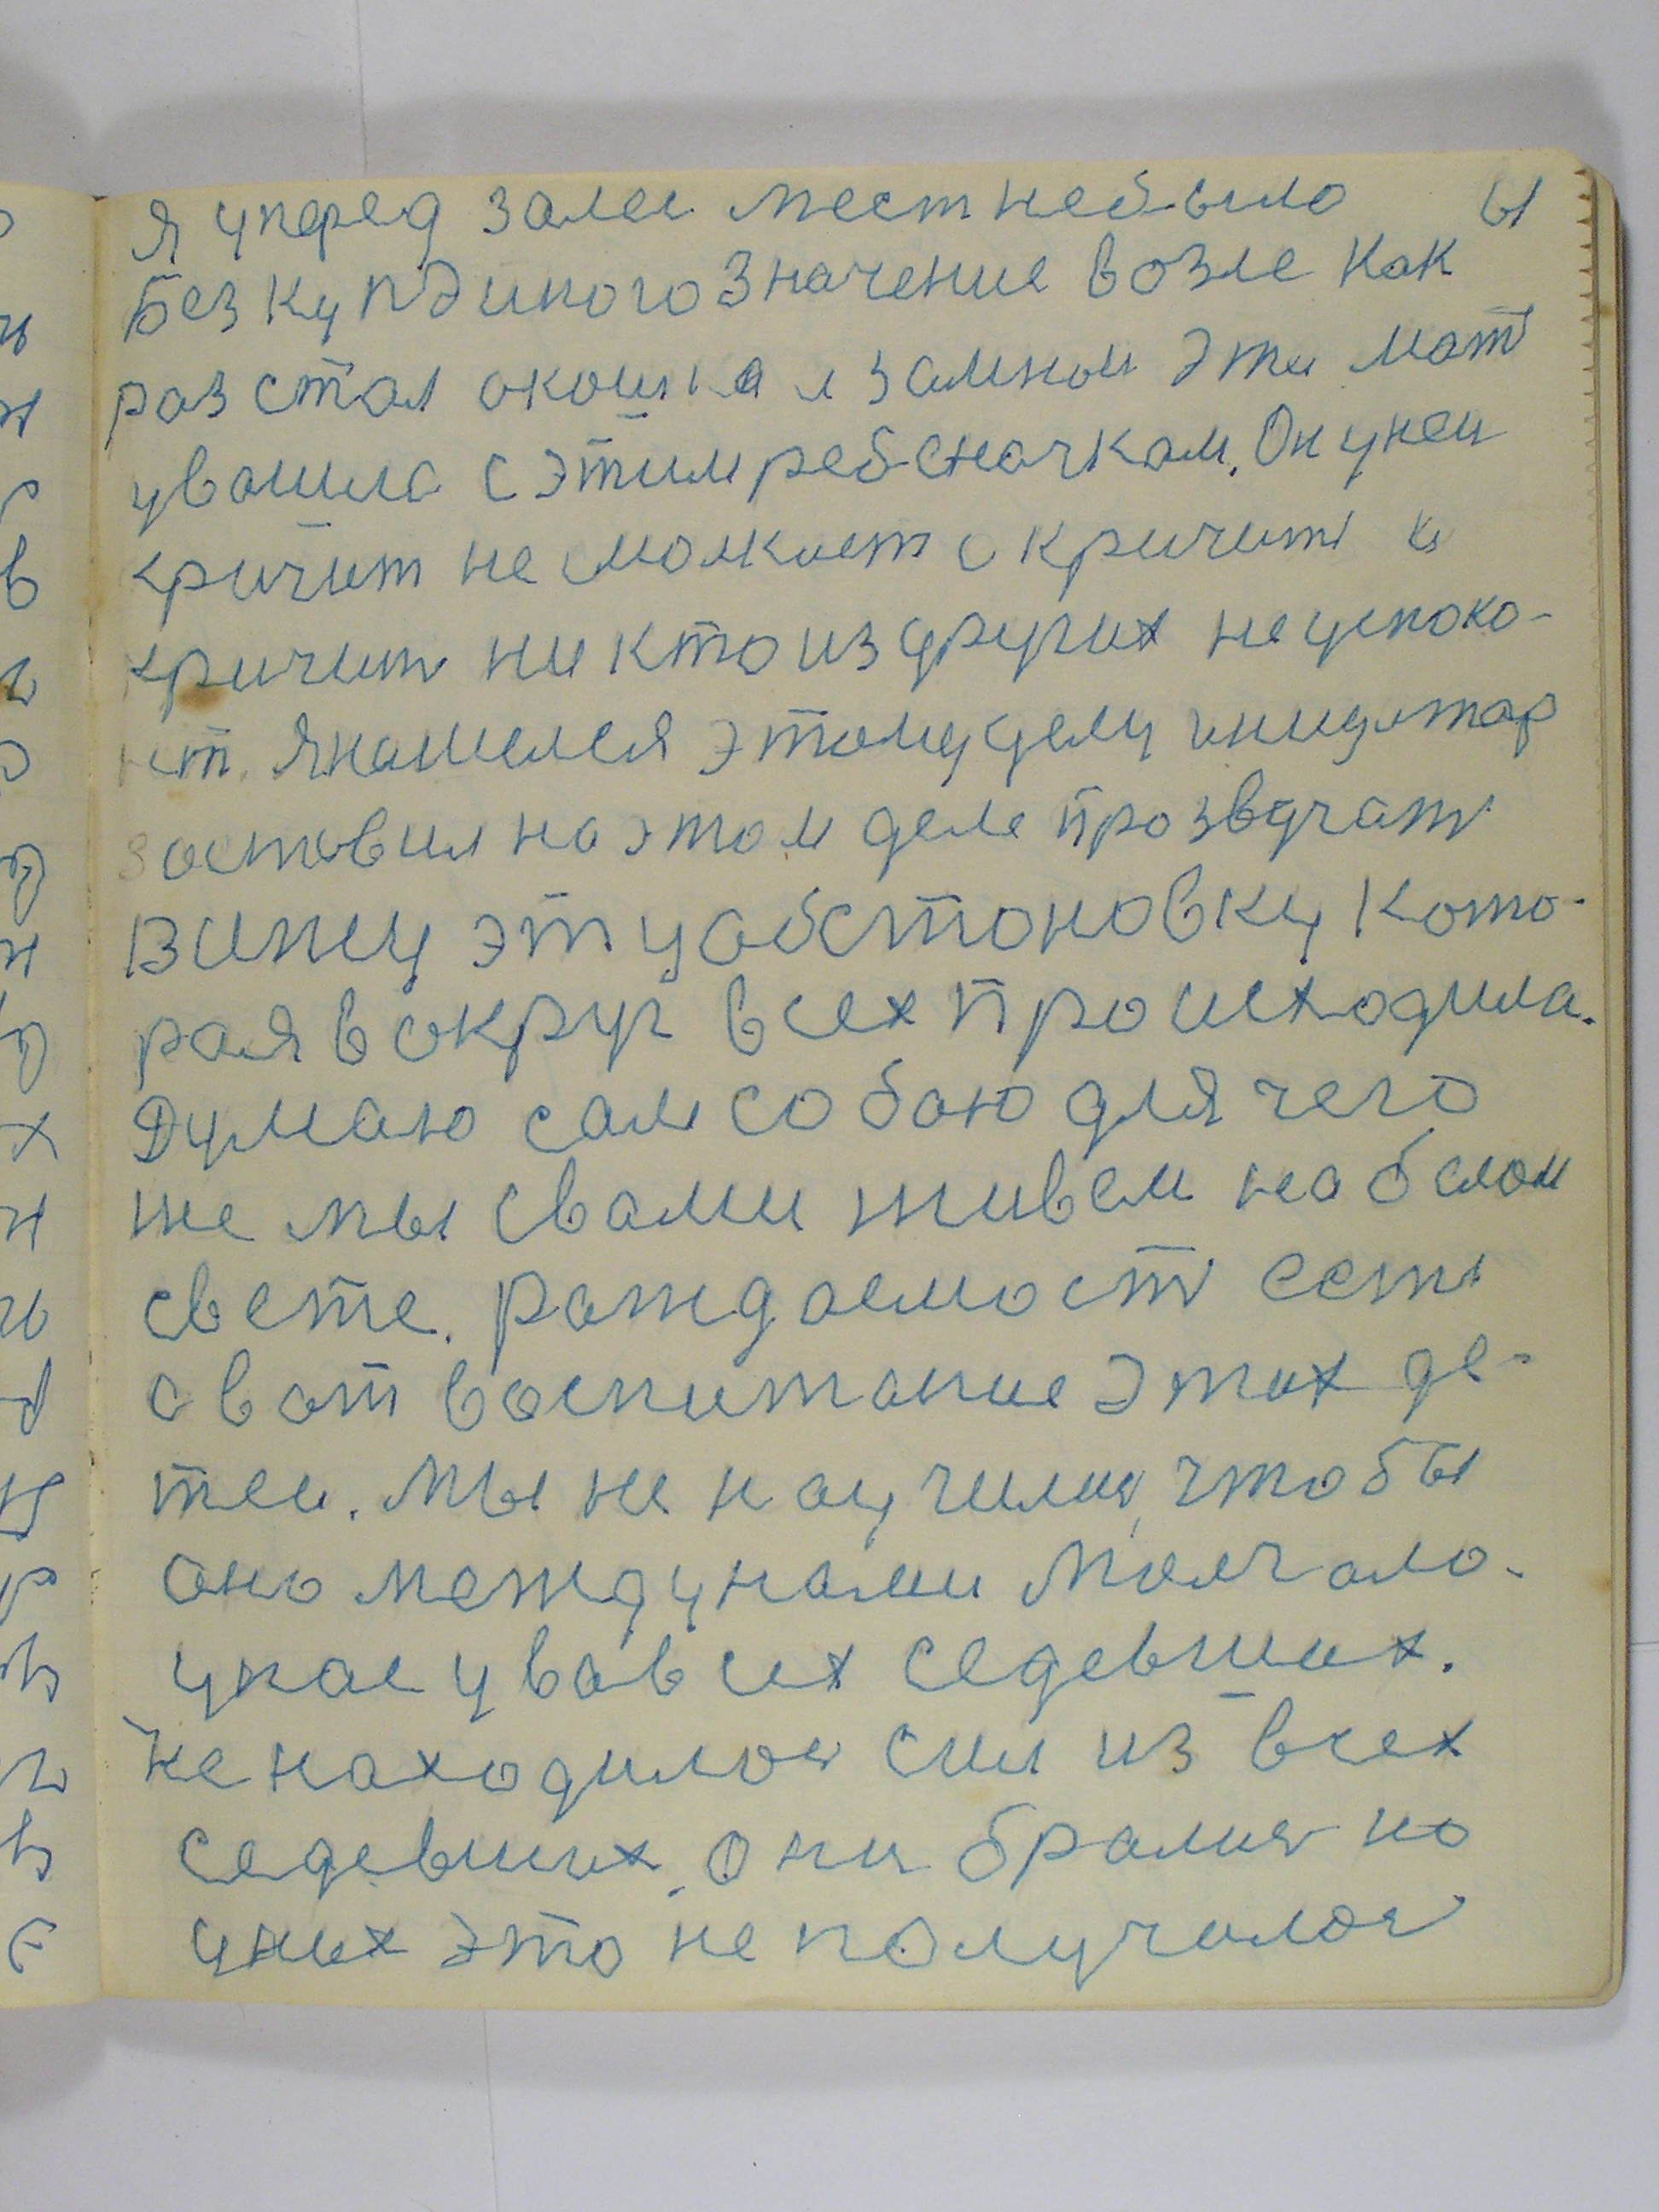 я уперед залез мест небыло ы
Без купэиного значение возле как
раз стал окошка и замной эта мат
увошила с этим ребеночкам. Он уней
кричит не смолкает а кричит и
кричит ни кто из других не успоко-
ит. Я нашелся этому делу
заставил на этом деле прозвучат
Вижу эту обстоновку кото-
рая вокруг всех происходила.
Думаю сам собою для чего
же мы свами живем на белом
свете. рождаемост есть
а вот воспитание этих де-
теи. Мы не научились, чтобы
оно между нами молчало.
у вовсех седевших.
Не находилося сил из всех
седевших. они бралися но
уних это не получалося